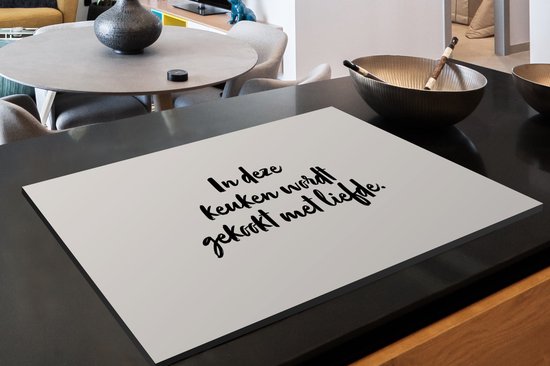 In deze
keuken wordt
gekookt met liefde.